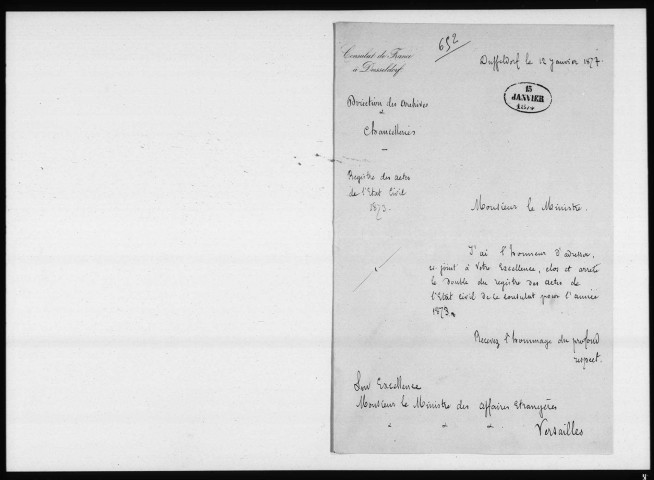 Consulat de France
à Dusseldorf
652
Dusseldorf le 12 Janvier 1877.
15
JANVIER
Direction des Archives
et
Chancelleries
Registre des actes
de l'Etat Civil
1873.
Monsieur le Ministre.
J'ai l'honneur d'adresser,
ci joint à Votre Excellence, clos et arrêté
le Double du registre des actes de
l'Etat civil de ce consulat pour l'année
1873.
Recevez l'hommage du profond
respect.
Son Excellence
Monsieur le Ministre des affaires Etrangères
Versailles